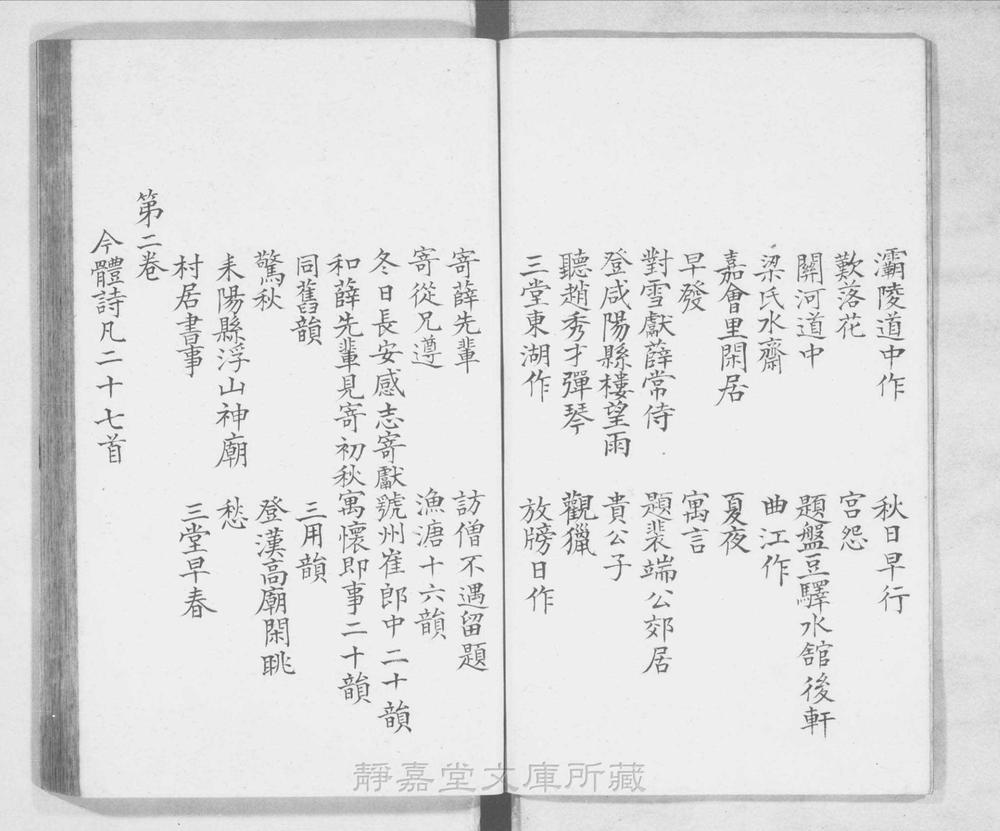 灞陵道中作　秋日早行
歎落花　宮怨
關河道中　題盤豆驛水舘後軒
梁氏水齋　曲江作
嘉會里閑居　夏夜
早發　寓言
對雪獻薛常侍　題裴端公郊居
登咸陽縣樓望雨　貴公子
聽趙秀才彈琴　觀獵
三堂東湖作　放牓日作
寄薛先輩　訪僧不遇留題
寄從兄遵　漁溏十六韻
冬日長安感志寄獻號州崔郎中二十韻
和薛先輩見寄初秋寓懷即事二十韻
同舊韻　三用韻
驚秋　登漢高廟閑眺
耒陽縣浮山神廟　愁
村居書事　三堂早春
第二卷
今體詩凡二十七首
靜嘉堂文庫所藏